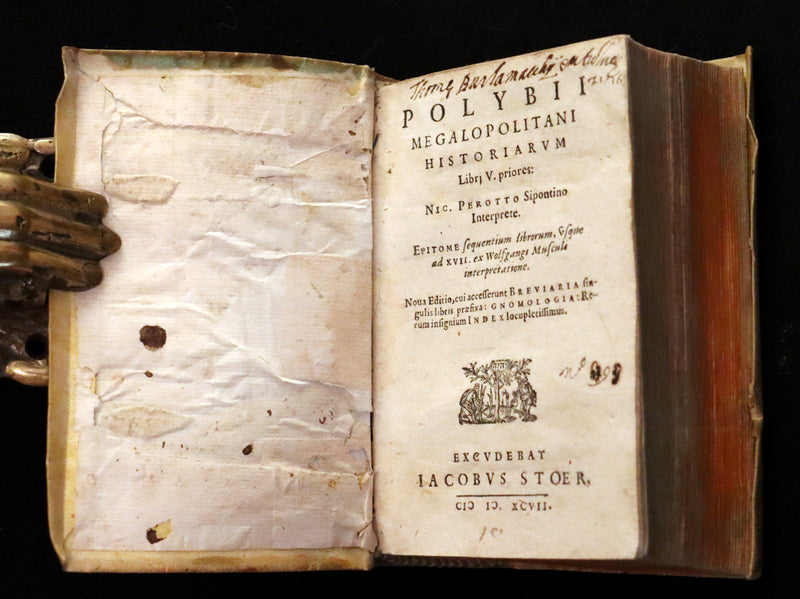 Burlamachi
POLYBII
MEGALOPOLITANI
HISTORIARVM
Librj V. priores:
NIC. PEROTTO Sipontino
Interprete.
EPITOME sequentium librorum, vsque
ad XVII. ex Wolfgangi Musculi
interpretatione.
Noua Editio, cui accesserunt BREVIARIA sin-
gulis libris præfixa: GNOMOLOGIA: Re-
rum insignium INDEX locupletissimus.
nº
EXCVDEBAT
IACOBVS STOER,
CIↃ IↃ. XCVII.